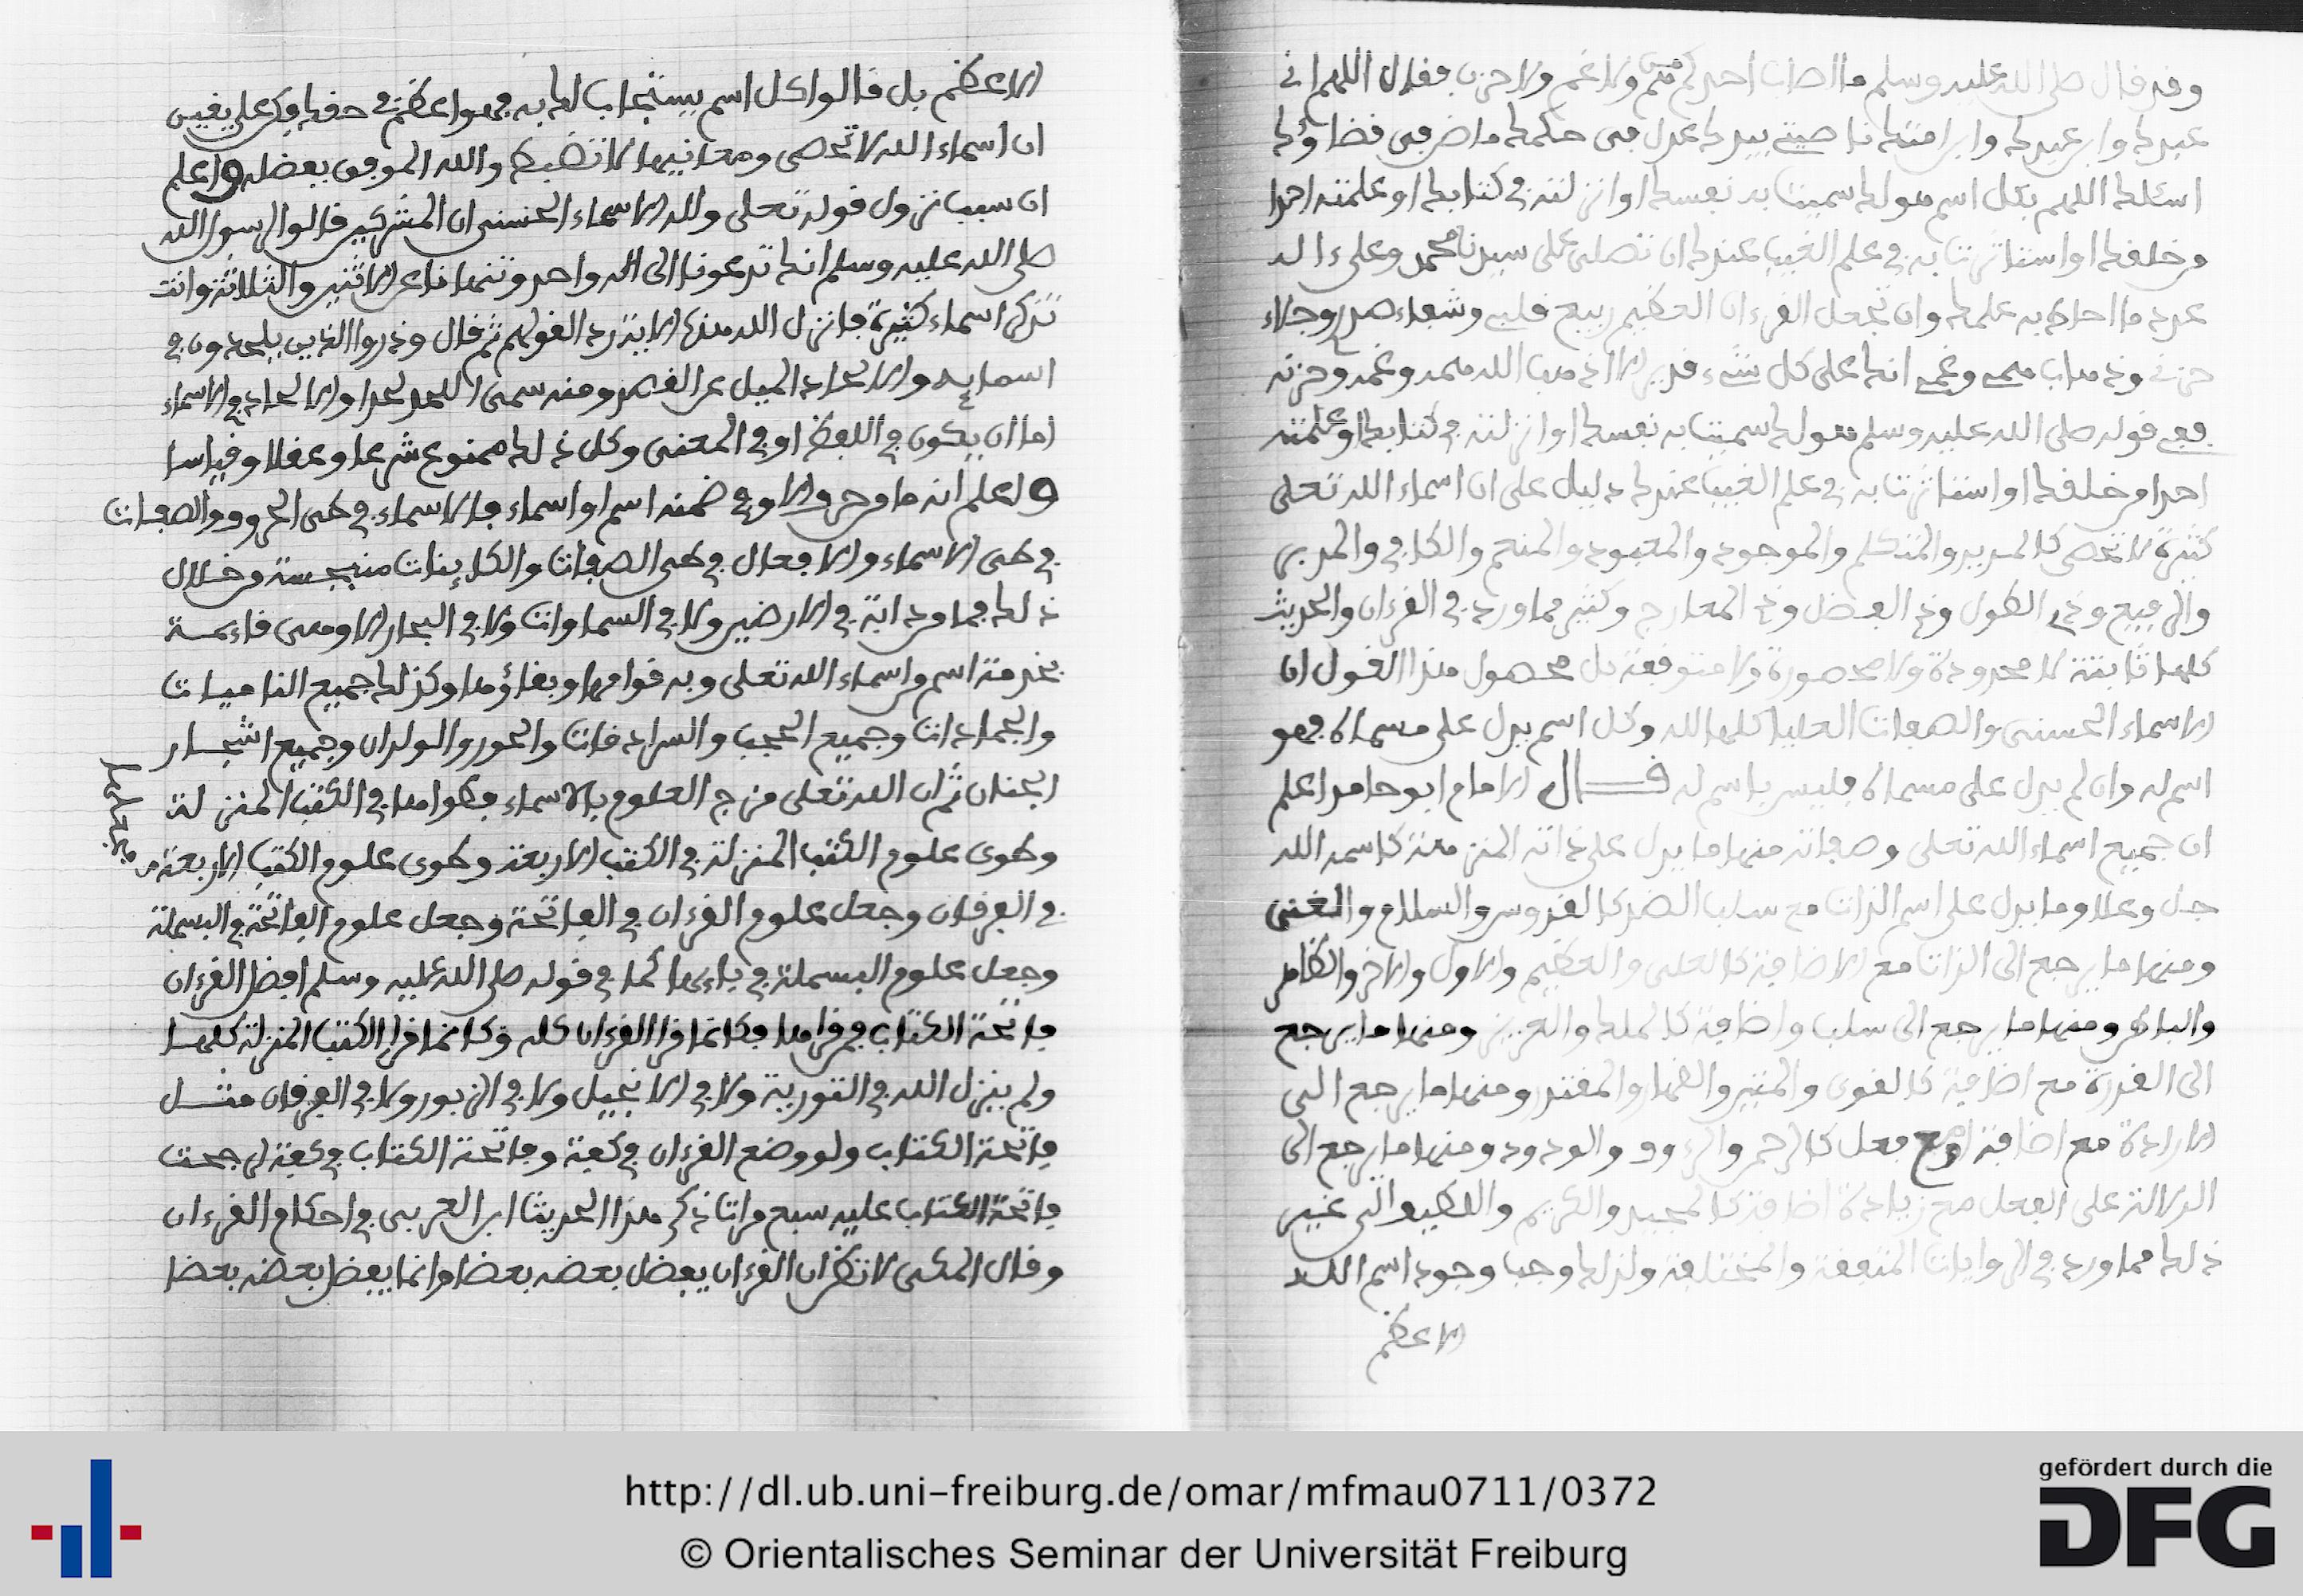 وقد قال صلى الله عليه وسلم ما اصاب احدكم هم ولا غم ولا حزن فقال اللهم اني
عبدك وابن عبدك وابن امتك ناصيتي بيدك عدل في حكمك ماض في قضاؤك
اسئلك اللهم بكل اسم هو لك سميت به نفسك او انزلته في كتابك او علمته احدا
من خلقك او استاثرت به في علم الغيب عندك ان تصلى على سيدنا محمد وعلى ءاله
عدد ما احاط به علمك وان تجعل القرءان العظيم ربيع قلبي وشفاء صدري وجلاء
حزني وذهاب همي وغمي انك على كل شيء قدير الا اذهب الله همه وغمه وحزنه
ففي قوله صلى الله عليه وسلم هو لك سميت به نفسك او انزلته في كتابك او علمته
احدا من خلقك او استاثرت به في علم الغيب عندك دليل على ان اسماء الله تعلى
كثيرة لا تحصى كالمريد والمتكلم والموجود والمعبود والمنعم والكافي والمربي
والرفيع وذي الطول وذي الفضل وذي المعارج وكثير مما ورد في القرءان والحديث
كلها ثابتة لا محدودة ولا محصورة ولا متوقفة بل محصول هذا القول ان
الاسماء الحسنى والصفات العليا كلها لله وكل اسم يدل على مسماه فهو
اسم له وان لم يدل على مسماه فليس باسم له قال الامام ابو حامد اعلم
ان جميع اسماء الله تعلى وصفاته منها ما يدل على ذاته المنزهة كاسمه الله
جل وعلا وما يدل على اسم الذات مع سلب الضد كالقدوس والسلام والغنى
ومنها ما يرجع الى الذات مع الاضافة كالعلى والعظيم والاول والاخر والظاهر
والباطن ومنها ما يرجع الى سلب واضافة كالملك والعزيز ومنها ما يرجع
الى القدرة مع اضافة كالقوى والمتين والقهار والمقتدر ومنها ما يرجع الى
الارادة مع اضافة او مع فعل كالرحمن والرءوف والودود ومنها ما يرجع الى
الدلالة على الفعل مع زيادة اضافة كالمجيد والكريم واللطيف الى غير
ذلك مما ورد في الروايات المتفقة والمختلفة ولذلك وجب وجود اسم الله
الاعظم
الاعظم بل قالوا كل اسم يستجاب لك به فهو اعظم في حقك فكن على يقين
ان اسماء الله لا تحصى ومعانيها لا تضبط والله الموفق بفضله واعلم
ان سبب نزول قوله تعلى ولله الاسماء الحسنى ان المشركين قالوا لرسول الله
صلى الله عليه وسلم انك تدعونا الى اله واحد وتنهانا عن الاثنين والثلاثة وانت
تذكر اسماء كثيرة فانزل الله هذه الاية رد القولهم ثم قال وذروا الذين يلحدون في
اسمايه والالحاد الميل عن القصد ومنه سمى اللحد لحدا والالحاد في الاسماء
اما ان يكون في اللفظ او في المعنى وكل ذلك ممنوع شرعا وعقلا وقياسا
واعلم انه ما من حرف الا وفي ضمنه اسم او اسماء فالاسماء في طى الحروف والصفات
في طى الاسماء والافعال في طى الصفات والكاينات منبجسة من خلال
ذلك فما من دابة في الارضين ولا في السماوات ولا في البحار الا وهى قائمة
بخدمة اسم من اسماء الله تعلى وبه قوامها وبقاؤها وكذلك جميع الناميات
والجمادات وجميع الحجب والسرادقات والحور والولدان وجميع اشجار
الجنان ثم ان الله تعلى مزج العلوم بالاسماء فطواها في الكتب المنزلة
وطوى علوم الكتب المنزلة في الكتب الاربعة وطوى علوم الكتب الاربعة
في الفرقان وجعل علوم القرءان في الفاتحة وجعل علوم الفاتحة في البسملة
وجعل علوم البسملة في باءها كما في قوله صلى الله عليه وسلم افضل القرءان
فاتحة الكتاب فمن قراها فكانما قرا القرءان كله وكانما قرا الكتب المنزلة كلها
ولم ينزل الله في التورية ولا في الانجيل ولا في الزبور ولا في الفرقان مثل
فاتحة الكتاب ولو وضع القرءان في كفة وفاتحة الكتاب في كفة لرجحت
فاتحة الكتاب عليه سبع مرات ذكر هذا الحديث ابن العربى في احكام القرءان
وقال المكى لا تظن ان القرءان يفضل بعضه بعضا وانما يفضل بعضه بعضا
http://dl.ub.uni-freiburg.de/omar/mfmau0711/0372
© Orientalisches Seminar der Universität Freiburg
gefördert durch die
DFG